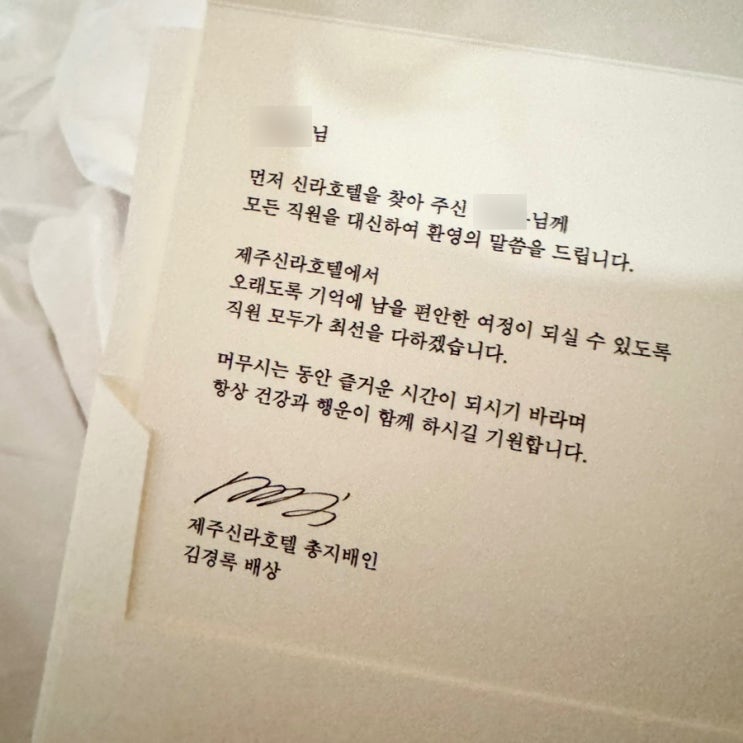 님
먼저 신라호텔을 찾아 주신 님께
모든 직원을 대신하여 환영의 말씀을 드립니다.
제주신라호텔에서
오래도록 기억에 남을 편안한 여정이 되실 수 있도록
직원 모두가 최선을 다하겠습니다.
머무시는 동안 즐거운 시간이 되시기 바라며
항상 건강과 행운이 함께 하시길 기원합니다.
제주신라호텔 총지배인
김경록 배상